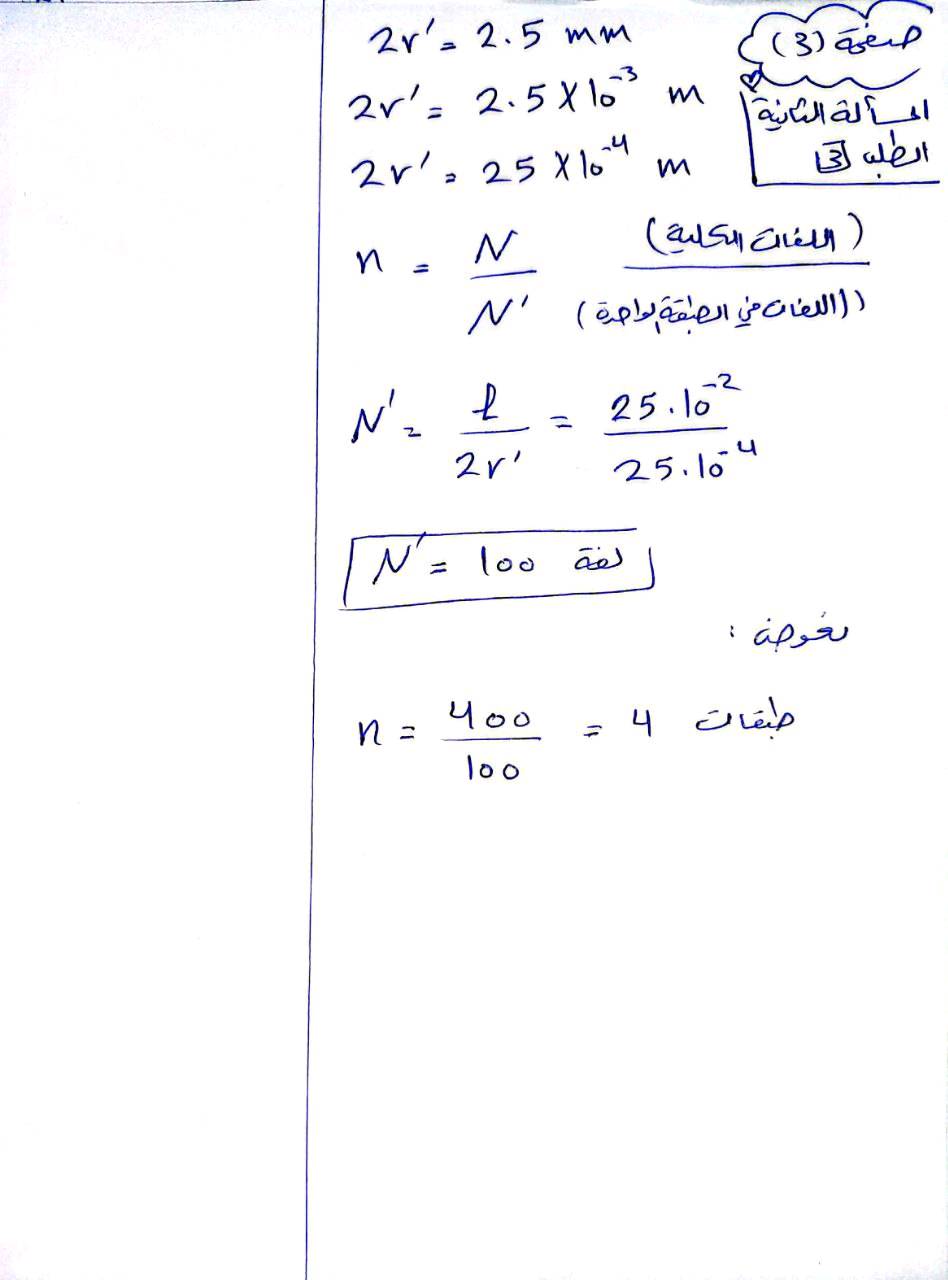 صفحة (3)
المسألة الثانية
الطلب 3
2r' = 2.5 mm
2r' = 2.5 X 10⁻³ m
2r' = 25 X 10⁻⁴ m
n = N / N' (اللفات الكلية) / (اللفات في الطبقة الواحدة)
N' = l / 2r' = 25.10⁻² / 25.10⁻⁴
N' = 100 لفة
نعوض :
n = 400 / 100 = 4 طبقات